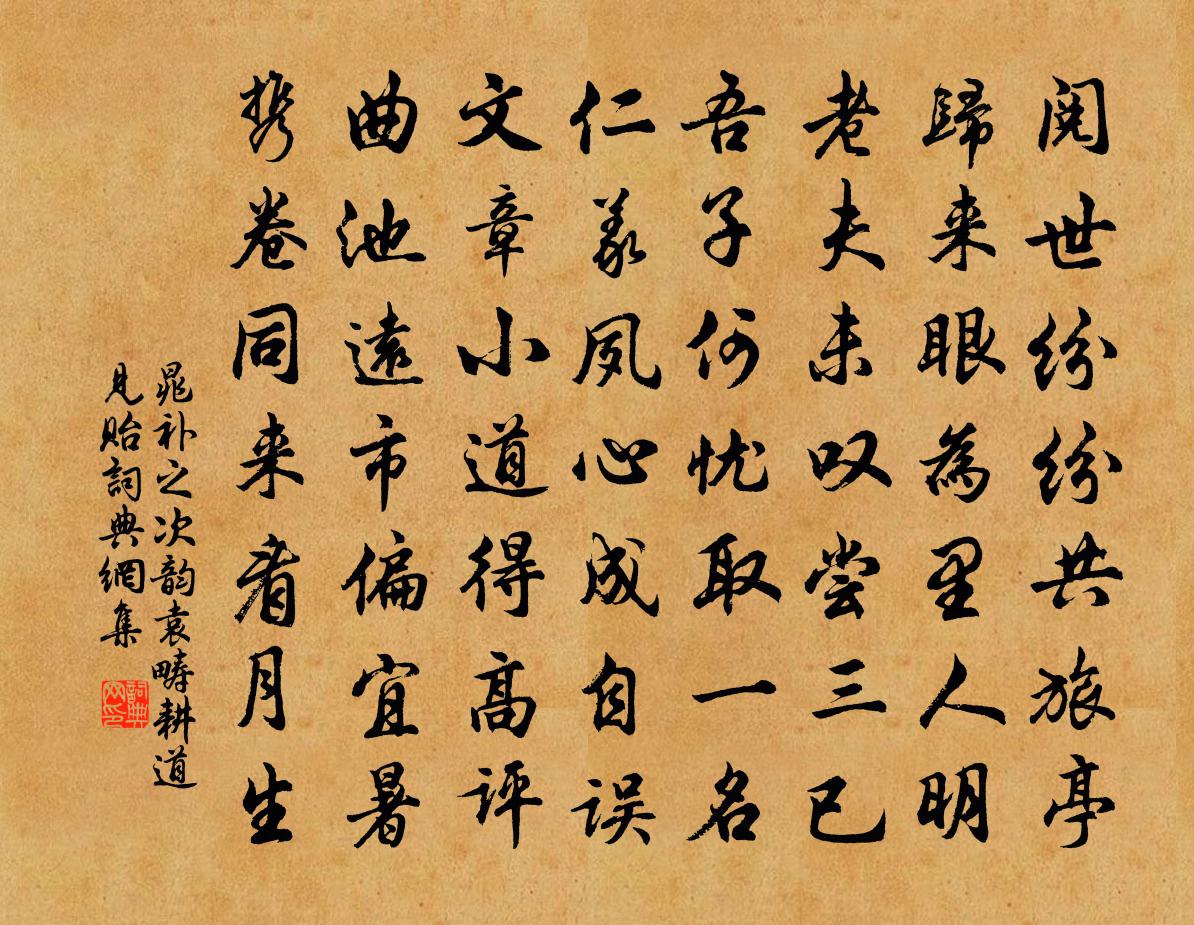 閱世紛紛共旅亭
歸来眼為里人明
老夫未叹尝三已
吾子何忧取一名
仁義夙心成自误
文章小道得高评
曲池遠市偏宜暑
携卷同来看月生
晁补之次韵袁畴耕道
見贻詞典網集
詞典
网印